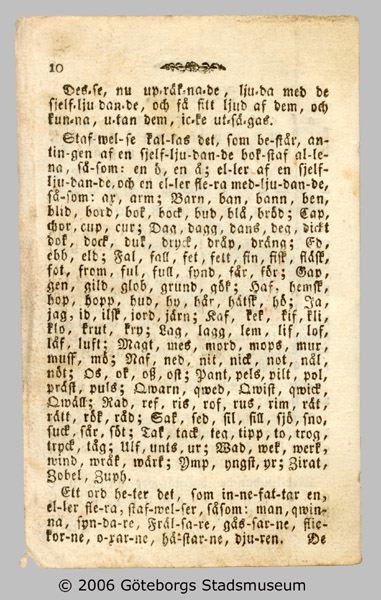 10
Des-se, nu up-räk-na-de, lju-da med de
sjelf-lju-dan-de, och få sitt ljud af dem, och
kun-na, u-tan dem, ic-ke ut-så-gas.
Staf-wel-se kal-las det, som be-står, an-
tin-gen af en sjelf-lju-dan-de bok-staf al-le-
na, så-som: en ö, en å; el-ler af en sjelf-
lju-dan-de, och en el-ler fle-ra med-lju-dan-de,
så-som: ax, arm; Barn, ban, bann, ben,
blid, bord, bok, bock, bud, blå, bröd; Cap,
chor, cup, cur; Dag, dagg, dans, deg, dickt
dok, dock, duk, dryck, dråp, dräng; Ed,
ebb, eld; Fal, fall, fet, fett, fin, fisk, fläsk,
fot, from, ful, full, fynd, får, för; Gap,
gen, gild, glob, grund, gök; Haf, hemsk,
hop, hopp, hud, hy, hår, hätsk, hö; Ja,
jag, id, ilsk, jord, järn; Kaf, kek, kif, kli
klo, krut, kry; Lag, lagg, lem, lif, lof,
låf, luft; Magt, mes, mord, mops, mur
muff, mö; Naf, ned, nit, nick, not, nål
nöt; Os, ok, oß, ost; Pant, pels, pilt, pol
präst, puls; Qwarn, qwed, Qwist, qwick,
Qwäll; Rad, ref, ris, rof, rus, rim, rät
rätt, rök, råd; Sak, sed, sil, sill, sjö, sno,
suck, sår, söt; Tak, tack, teg, tipp, to, trog,
tryck, tåg; Ulf, unts, ur; Wad, wek, werk,
wind, wrak, wärk; Ymp, yngst, yr; Zirat,
Zobel, Zuph.
Ett ord he-ter det, som in-ne-fat-tar en,
el-ler fle-ra, staf-wel-ser, såsom: man, qwin-
na, syn-da-re, Fräl-sa-re, gås-sar-ne, flic-
kor-ne, o-xar-ne, hä-star-ne, dju-ren. De
© 2006 Göteborgs Stadsmuseum